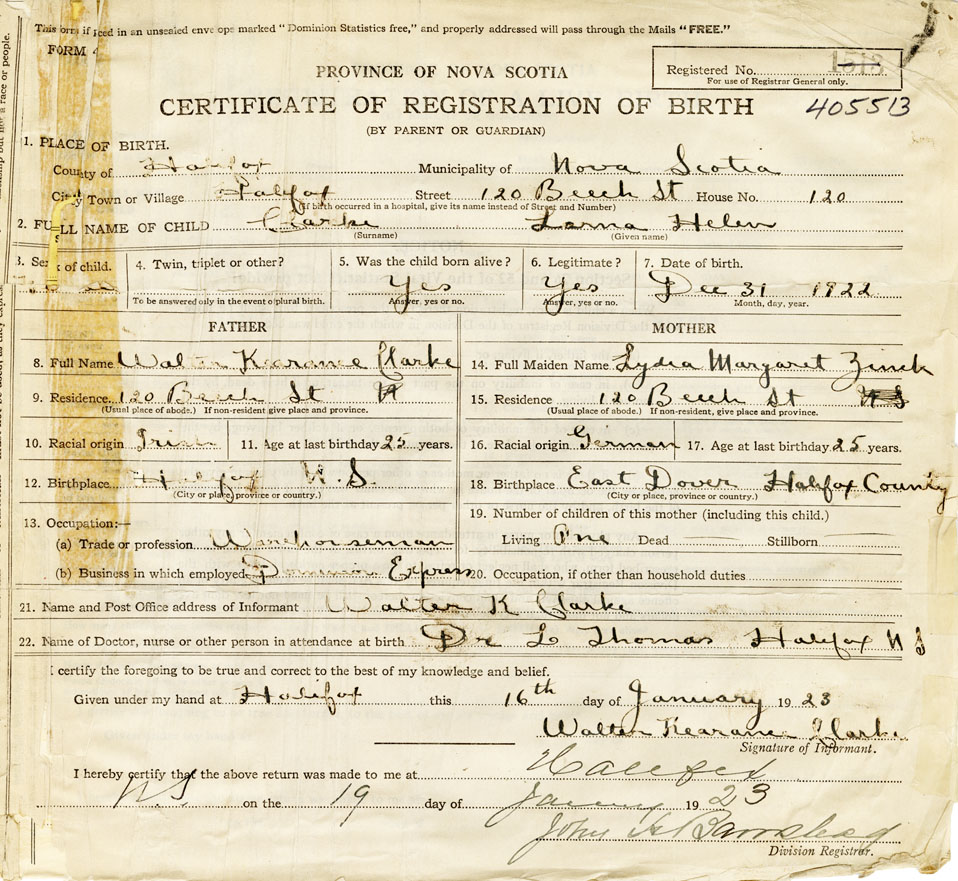 This form if laced in an unsealed envelope marked "Dominion Statistics free," and properly addressed will pass through the Mails "FREE."
FORM 4
PROVINCE OF NOVA SCOTIA
Registered No. 1518
For use of Registrar General only.
CERTIFICATE OF REGISTRATION OF BIRTH 405513
(BY PARENT OR GUARDIAN)
1. PLACE OF BIRTH.
County of Halifax Municipality of Nova Scotia
City Town or Village Halifax Street 120 Beech St House No. 120
(If birth occurred in a hospital, give its name instead of Street and Number)
2. FULL NAME OF CHILD Clarke Lorna Helen
(Surname) (Given name)
3. Sex of child. 4. Twin, triplet or other? 5. Was the child born alive? 6. Legitimate? 7. Date of birth.
Yes Yes Dec 31 1922
To be answered only in the event of plural birth. Answer, yes or no. Answer, yes or no. Month, day, year.
FATHER MOTHER
8. Full Name Walter Kearane Clarke 14. Full Maiden Name Lydia Margaret Zinck
9. Residence. 120 Beech St 15. Residence 120 Beech St N S
(Usual place of abode.) If non-resident give place and province. (Usual place of abode.) If non-resident, give place and province.
10. Racial origin Irish 11. Age at last birthday 25 years. 16. Racial origin German 17. Age at last birthday 25 years.
12. Birthplace Halifax N.S. 18. Birthplace East Dover Halifax County
(City or place, province or country.) (City or place, province or country.)
19. Number of children of this mother (including this child.)
13. Occupation:—
(a) Trade or profession Warehouseman Living One Dead — Stillborn —
(b) Business in which employed Dominion Express 20. Occupation, if other than household duties
21. Name and Post Office address of Informant Walter K Clarke
22. Name of Doctor, nurse or other person in attendance at birth Dr L Thomas Halifax N S
I certify the foregoing to be true and correct to the best of my knowledge and belief.
Given under my hand at Halifax this 16th day of January 1923
Walter Kearane Clarke
Signature of Informant.
I hereby certify that the above return was made to me at Halifax
N.S. on the 19 day of January 1923
John A Barnstead
Division Registrar.